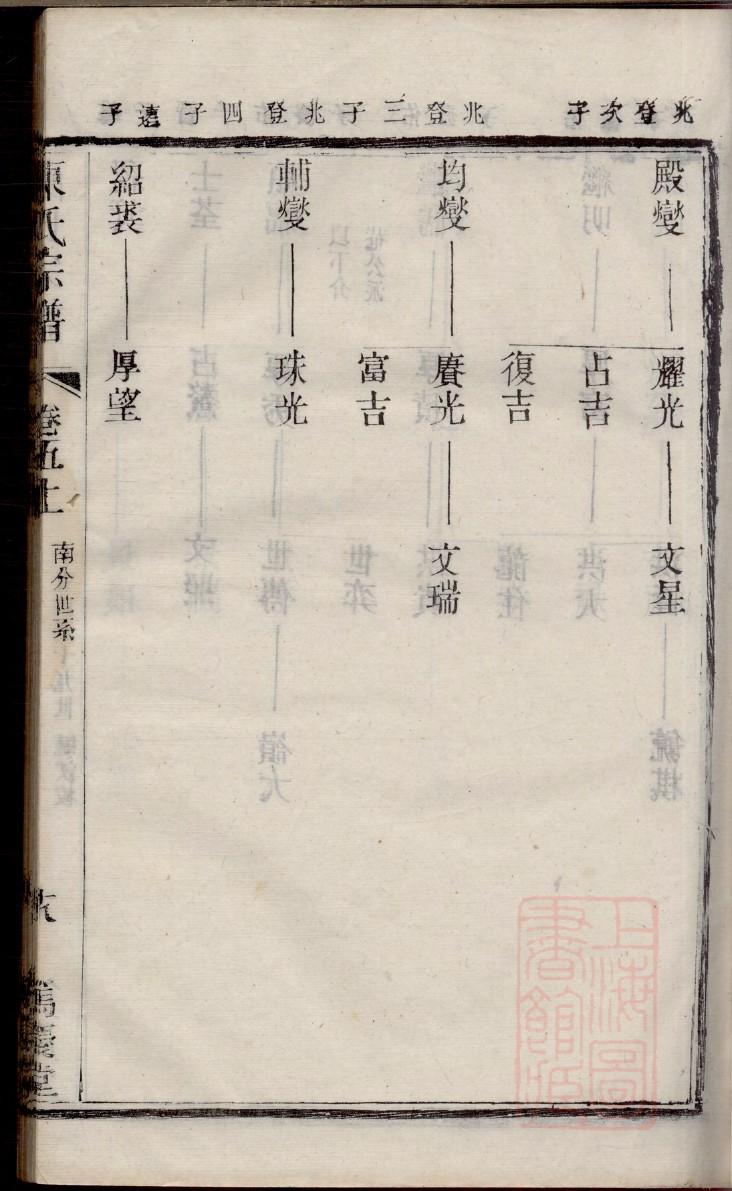 兆登次子
兆登三子
兆登四子
遠子
殿燮
耀光
文星
占吉
復吉
均燮
賡光
文瑞
富吉
輔燮
珠光
紹裘
厚望
陳氏宗譜
卷五上
南分世系
十九世
篤慶堂
上海圖
書館藏